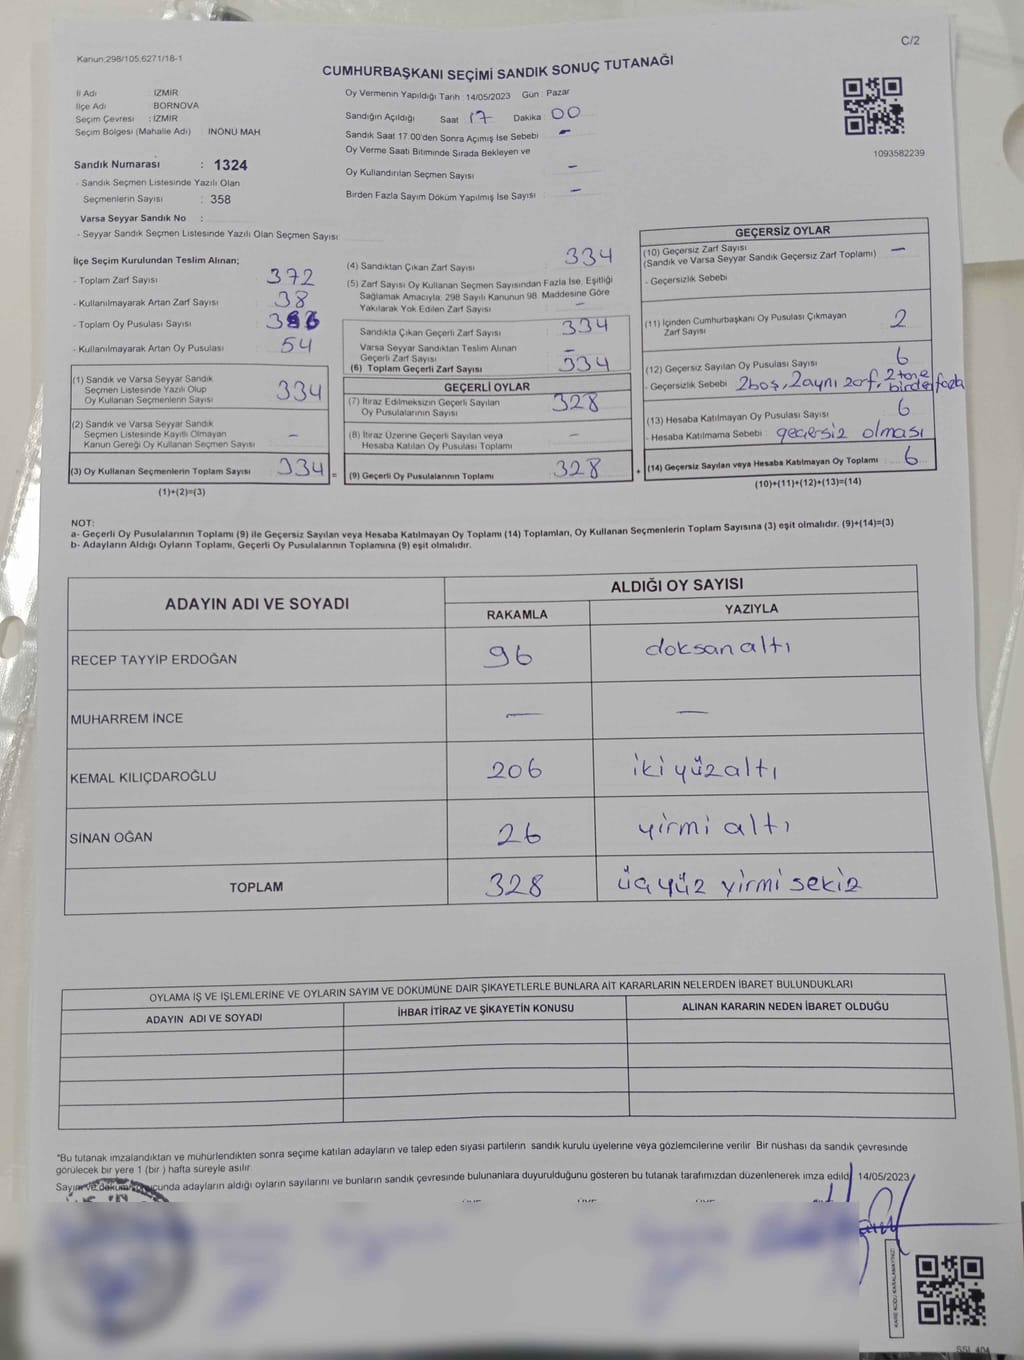 C/2
Kanun:298/105,6271/18-1
CUMHURBAŞKANI SEÇİMİ SANDIK SONUÇ TUTANAĞI
İl Adı : İZMİR
İlçe Adı : BORNOVA
Seçim Çevresi : İZMİR
Seçim Bölgesi (Mahalle Adı) İNÖNÜ MAH
Sandık Numarası : 1324
- Sandık Seçmen Listesinde Yazılı Olan
Seçmenlerin Sayısı : 358
Varsa Seyyar Sandık No :
- Seyyar Sandık Seçmen Listesinde Yazılı Olan Seçmen Sayısı
Oy Vermenin Yapıldığı Tarih :14/05/2023 Gün : Pazar
Sandığın Açıldığı Saat 17 Dakika : 00
Sandık Saat 17.00'den Sonra Açımış İse Sebebi -
Oy Verme Saati Bitiminde Sırada Bekleyen ve
Oy Kullandırılan Seçmen Sayısı -
Birden Fazla Sayım Döküm Yapılmış İse Sayısı -
1093582239
İlçe Seçim Kurulundan Teslim Alınan;
- Toplam Zarf Sayısı : 372
- Kullanılmayarak Artan Zarf Sayısı : 38
- Toplam Oy Pusulası Sayısı :
- Kullanılmayarak Artan Oy Pusulası : 54
(1) Sandık ve Varsa Seyyar Sandık
Seçmen Listesinde Yazılı Olup
Oy Kullanan Seçmenlerin Sayısı 334
(2) Sandık ve Varsa Seyyar Sandık
Seçmen Listesinde Kayıtlı Olmayan
Kanun Gereği Oy Kullanan Seçmen Sayısı -
(3) Oy Kullanan Seçmenlerin Toplam Sayısı 334 =
(1)+(2)=(3)
(4) Sandıktan Çıkan Zarf Sayısı 334
(5) Zarf Sayısı Oy Kullanan Seçmen Sayısından Fazla İse, Eşitliği
Sağlamak Amacıyla; 298 Sayılı Kanunun 98. Maddesine Göre
Yakılarak Yok Edilen Zarf Sayısı -
Sandıkta Çıkan Geçerli Zarf Sayısı 334
Varsa Seyyar Sandıktan Teslim Alınan
Geçerli Zarf Sayısı -
(6) Toplam Geçerli Zarf Sayısı 334
GEÇERLİ OYLAR
(7) İtiraz Edilmeksizin Geçerli Sayılan
Oy Pusulalarının Sayısı 328
(8) İtiraz Üzerine Geçerli Sayılan veya
Hesaba Katılan Oy Pusulası Toplamı -
(9) Geçerli Oy Pusulalarının Toplamı 328 +
GEÇERSİZ OYLAR
(10) Geçersiz Zarf Sayısı -
(Sandık ve Varsa Seyyar Sandık Geçersiz Zarf Toplamı)
- Geçersizlik Sebebi
(11) İçinden Cumhurbaşkanı Oy Pusulası Çıkmayan
Zarf Sayısı 2
(12) Geçersiz Sayılan Oy Pusulası Sayısı 6
- Geçersizlik Sebebi 2boş, 2aynı zarf, 2 tane birden fazla
(13) Hesaba Katılmayan Oy Pusulası Sayısı 6
- Hesaba Katılmama Sebebi : geçersiz olması
(14) Geçersiz Sayılan veya Hesaba Katılmayan Oy Toplamı 6
(10)+(11)+(12)+(13)=(14)
NOT:
a- Geçerli Oy Pusulalarının Toplamı (9) ile Geçersiz Sayılan veya Hesaba Katılmayan Oy Toplamı (14) Toplamları, Oy Kullanan Seçmenlerin Toplam Sayısına (3) eşit olmalıdır. (9)+(14)=(3)
b- Adayların Aldığı Oyların Toplamı, Geçerli Oy Pusulalarının Toplamına (9) eşit olmalıdır.
ADAYIN ADI VE SOYADI ALDIĞI OY SAYISI
RAKAMLA YAZIYLA
RECEP TAYYİP ERDOĞAN 96 doksan altı
MUHARREM İNCE — —
KEMAL KILIÇDAROĞLU 206 iki yüz altı
SİNAN OĞAN 26 yirmi altı
TOPLAM 328 üç yüz yirmi sekiz
OYLAMA İŞ VE İŞLEMLERİNE VE OYLARIN SAYIM VE DÖKÜMÜNE DAİR ŞİKAYETLERLE BUNLARA AİT KARARLARIN NELERDEN İBARET BULUNDUKLARI
ADAYIN ADI VE SOYADI İHBAR İTİRAZ VE ŞİKAYETİN KONUSU ALINAN KARARIN NEDEN İBARET OLDUĞU
*Bu tutanak imzalandıktan ve mühürlendikten sonra seçime katılan adayların ve talep eden siyasi partilerin sandık kurulu üyelerine veya gözlemcilerine verilir. Bir nüshası da sandık çevresinde
görülecek bir yere 1 (bir ) hafta süreyle asılır.
adayların aldığı oyların sayılarını ve bunların sandık çevresinde bulunanlara duyurulduğunu gösteren bu tutanak tarafımızdan düzenlenerek imza edildi 14/05/2023
KARE KODU KARALAMAYINIZ!